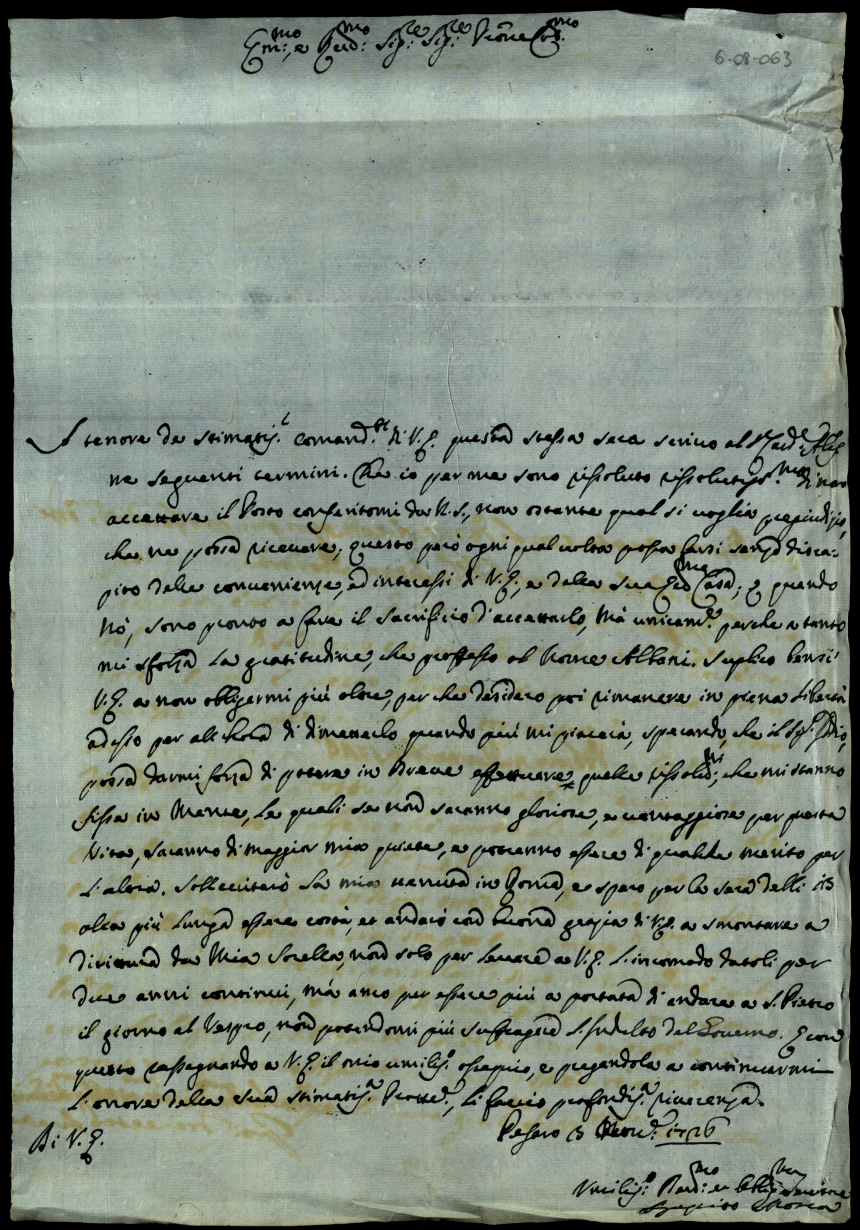 Em:mo, e Rud:mo Sig:re Sig:re Prone Col:mo
6-08-063
A tenore de stimatis:i Comand:ti di V.E. questa stessa sera scrivo al S.r Card:e
ne seguenti termini. Che io per me sono rissoluto rissolutis:mo di non
accettare il Posto conferitomi da N.S., non ostante qual si voglia pregiudizio,
che ne possa ricevere; questo però ogni qual volta possa farsi senza disca-
pito delle convenienze, ed interessi di V.E., e della sua Ecc:ma Casa; e quando
Nò, sono pronto a fare il sacrificio d'accettarlo, Mà unicam:e perche a tanto
mi sforza la gratitudine, che professo al Nome Albani. Suplico bensi
V.E. a non obligarmi più oltre, per che desidero poi rimanere in piena libertà
adesso per allhora di dimetterlo quando più mi piacerà, sperando, che il Sig:e Iddio,
possa darmi forza di potere in Breve effettuare quelle rissoluz:ni, che mi stanno
fisse in Mente, Le quali se non saranno gloriose, e vantaggiose per questa
Vita, saranno di maggior mia quiete, e potranno essere di qualche merito per
L'altra. Sollecitarò la mia venuta in Roma, e spero per la sera delli 18
alla più lunga essere costà, et andarò con buona grazia di V.E. a smontare a
dirittura da Mia Sorella, non solo per levare a V.E. l'incomodo datoli per
due anni continui, mà anco per essere più a portata di andare a S. Pietro
il giorno al Vespro, non potendomi più suffragare l'Indulto del Governo. E con
questo rassegnando a V.E. il mio umilis:o ossequio, e pregandola a continuarmi
L'onore della sua stimatis:a Protte:, li faccio profondis:a riverenza.
Di V.E.
Pesaro 3 Nov:e 1726
Umilis:o Dev:mo et Obblig:mo Servitore